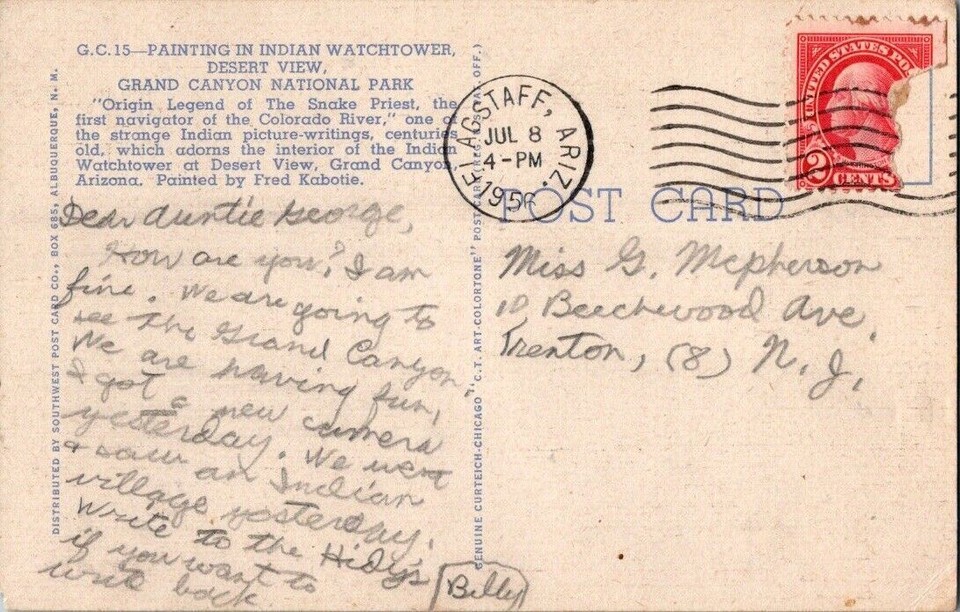 G.C.15—PAINTING IN INDIAN WATCHTOWER,
DESERT VIEW,
GRAND CANYON NATIONAL PARK
"Origin Legend of The Snake Priest, the
first navigator of the Colorado River," one of
the strange Indian picture-writings, centuries
old, which adorns the interior of the Indian
Watchtower at Desert View, Grand Canyon
Arizona. Painted by Fred Kabotie.
DISTRIBUTED BY SOUTHWEST POST CARD CO., BOX 685, ALBUQUERQUE, N. M.
Dear Auntie George,
How are you? I am
fine. We are going to
see the Grand Canyon.
We are having fun,
I got a new camera
yesterday. We went
& saw an Indian
village yesterday.
Write to the Hidy's
if you want to
write back.
Billy
GENUINE CURTEICH-CHICAGO "C.T. ART-COLORTONE" POST CARD (REG. U.S. PAT. OFF.)
FLAGSTAFF, ARIZ.
JUL 8
4-PM
1956
UNITED STATES PO
2 CENTS
POST CARD
Miss G. Mcpherson
10 Beechwood Ave.
Trenton, (8) N. J.